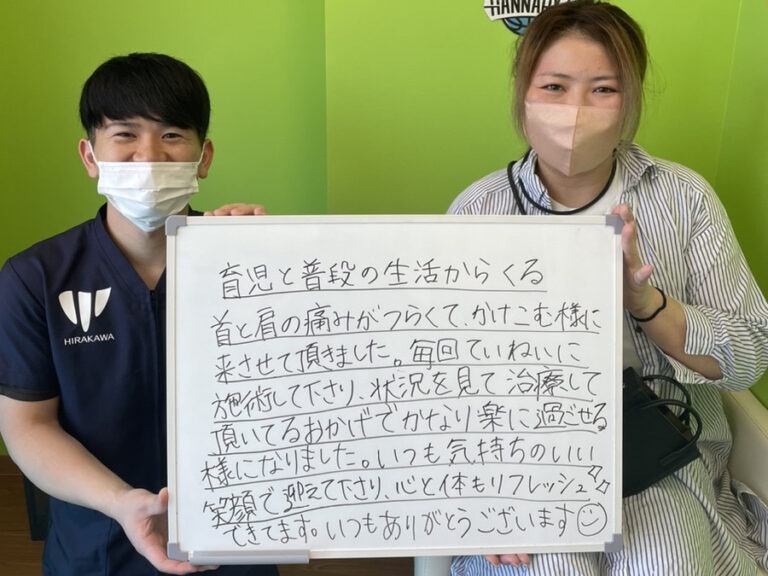 HANNAH
HIRAKAWA
育児と普段の生活からくる
首と肩の痛みがつらくて、かけこむ様に
来させて頂きました。毎回ていねいに
施術して下さり、状況を見て治療して
頂いてるおかげでかなり楽に過ごせる
様になりました。いつも気持ちのいい
笑顔で迎えて下さり、心と体もリフレッシュ
できてます。いつもありがとうございます